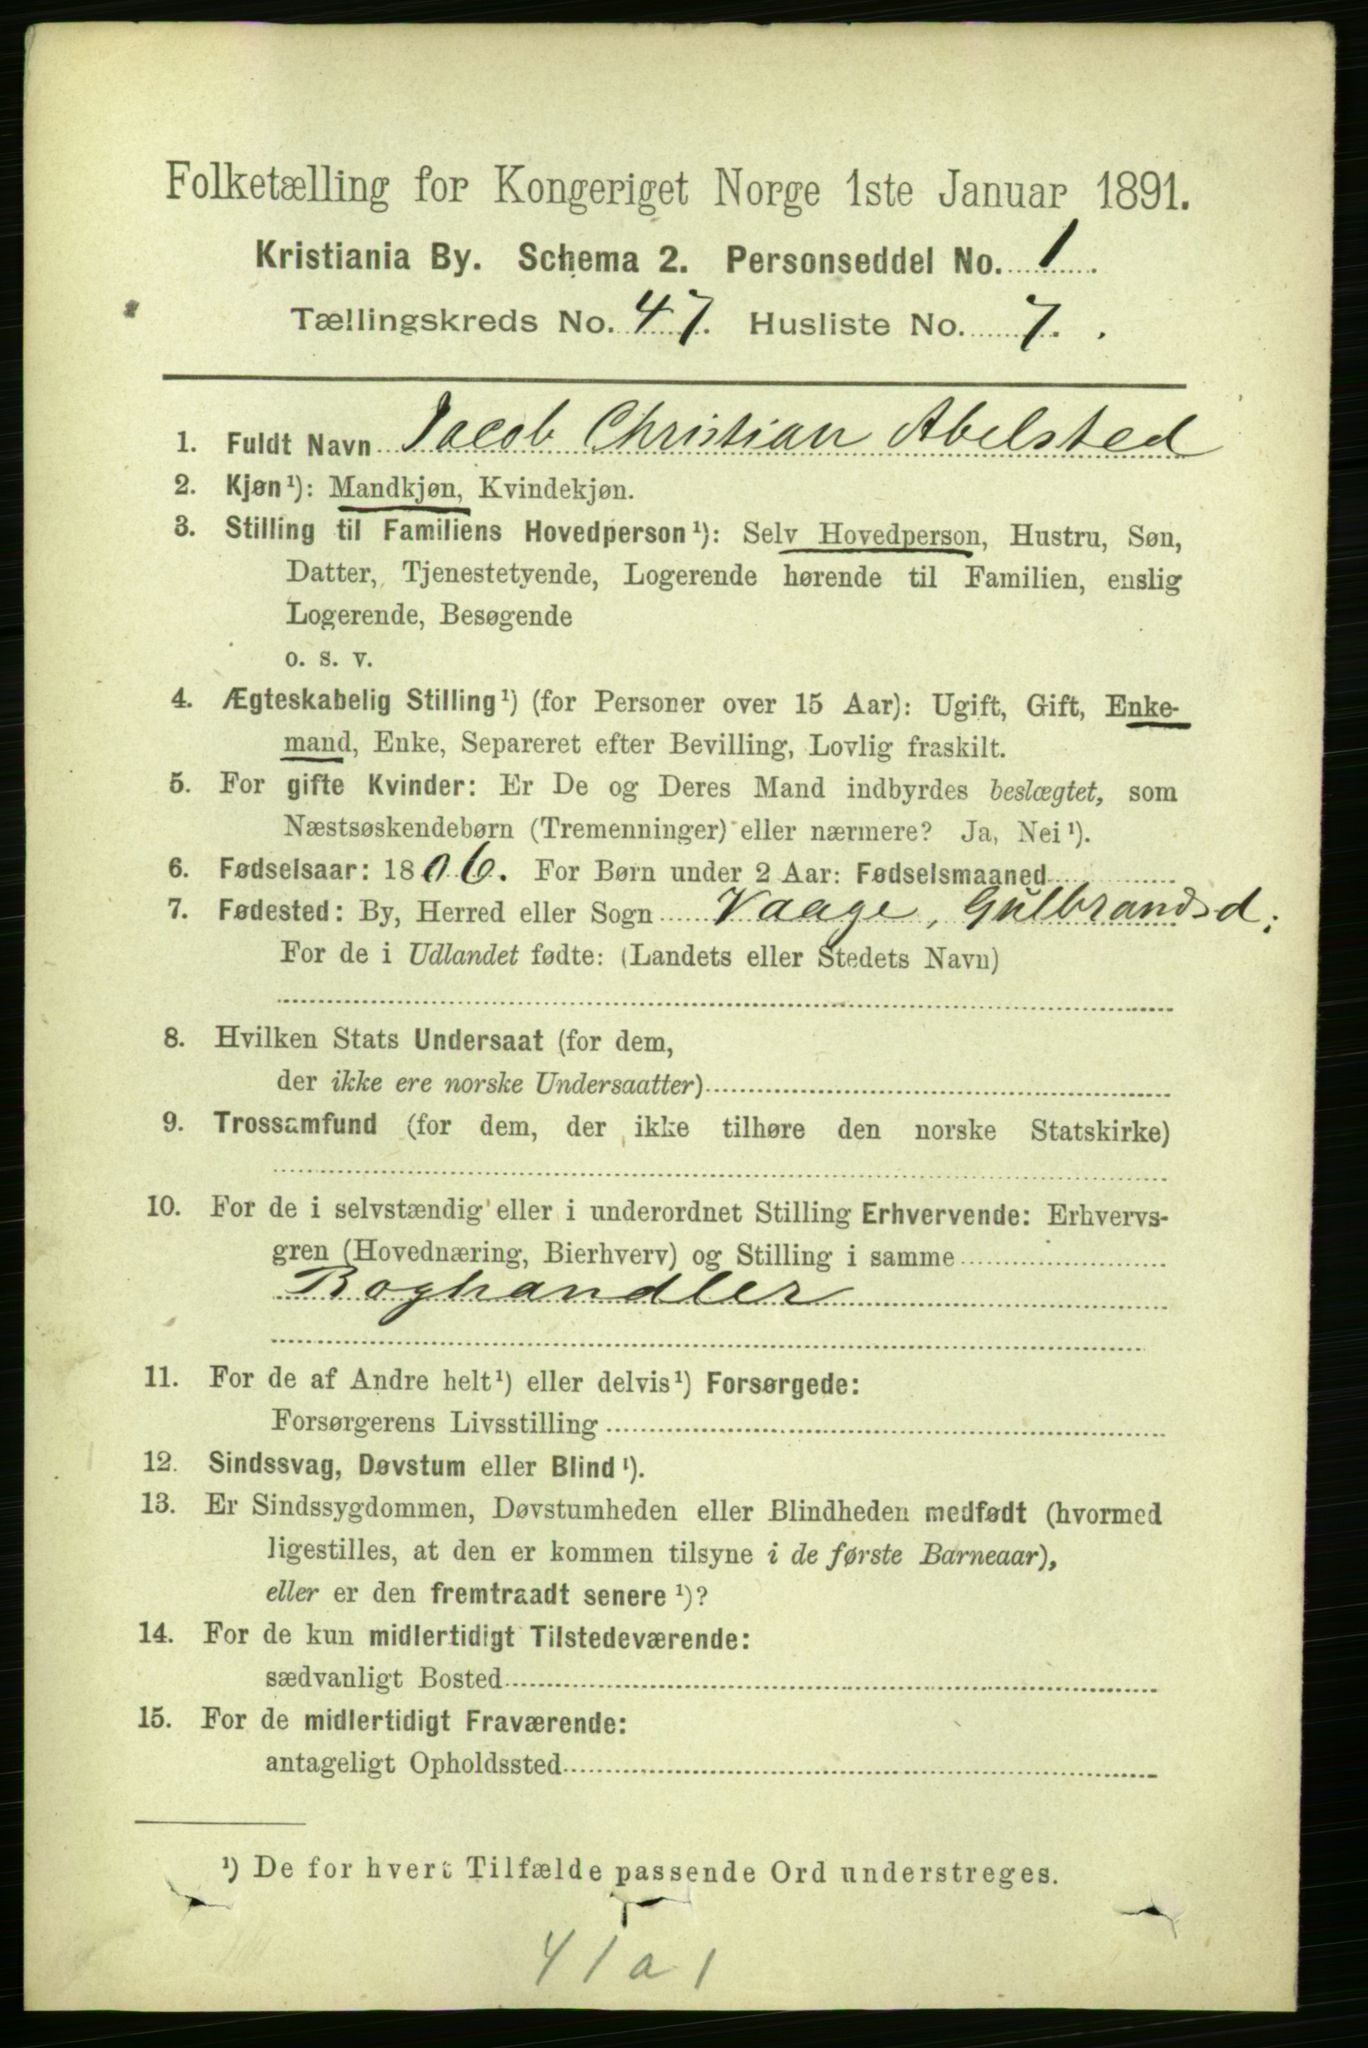 Folketælling for Kongeriget Norge 1ste Januar 1891.
Kristiania By. Schema 2. Personseddel No. 1
Tællingskreds No. 47. Husliste No. 7.
1. Fuldt Navn Jacob Christian Abelsted
2. Kjøn¹): Mandkjøn, Kvindekjøn.
3. Stilling til Familiens Hovedperson¹): Selv Hovedperson, Hustru, Søn,
Datter, Tjenestetyende, Logerende hørende til Familien, enslig
Logerende, Besøgende
o. s. v.
4. Ægteskabelig Stilling¹) (for Personer over 15 Aar): Ugift, Gift, Enke-
mand, Enke, Separeret efter Bevilling, Lovlig fraskilt.
5. For gifte Kvinder: Er De og Deres Mand indbyrdes beslægtet, som
Næstsøskendebørn (Tremenninger) eller nærmere? Ja, Nei¹).
6. Fødselsaar: 1806. For Børn under 2 Aar: Fødselsmaaned
7. Fødested: By, Herred eller Sogn Vaage, Gulbrandsd:
For de i Udlandet fødte: (Landets eller Stedets Navn)
8. Hvilken Stats Undersaat (for dem,
der ikke ere norske Undersaatter)
9. Trossamfund (for dem, der ikke tilhøre den norske Statskirke)
10. For de i selvstændig eller i underordnet Stilling Erhvervende: Erhvervs-
gren (Hovednæring, Bierhverv) og Stilling i samme
Boghandler
11. For de af Andre helt¹) eller delvis¹) Forsørgede:
Forsørgerens Livsstilling
12. Sindssvag, Døvstum eller Blind¹).
13. Er Sindssygdommen, Døvstumheden eller Blindheden medfødt (hvormed
ligestilles, at den er kommen tilsyne i de første Barneaar),
eller er den fremtraadt senere¹)?
14. For de kun midlertidigt Tilstedeværende:
sædvanligt Bosted
15. For de midlertidigt Fraværende:
antageligt Opholdssted
¹) De for hvert Tilfælde passende Ord understreges.
41 a 1